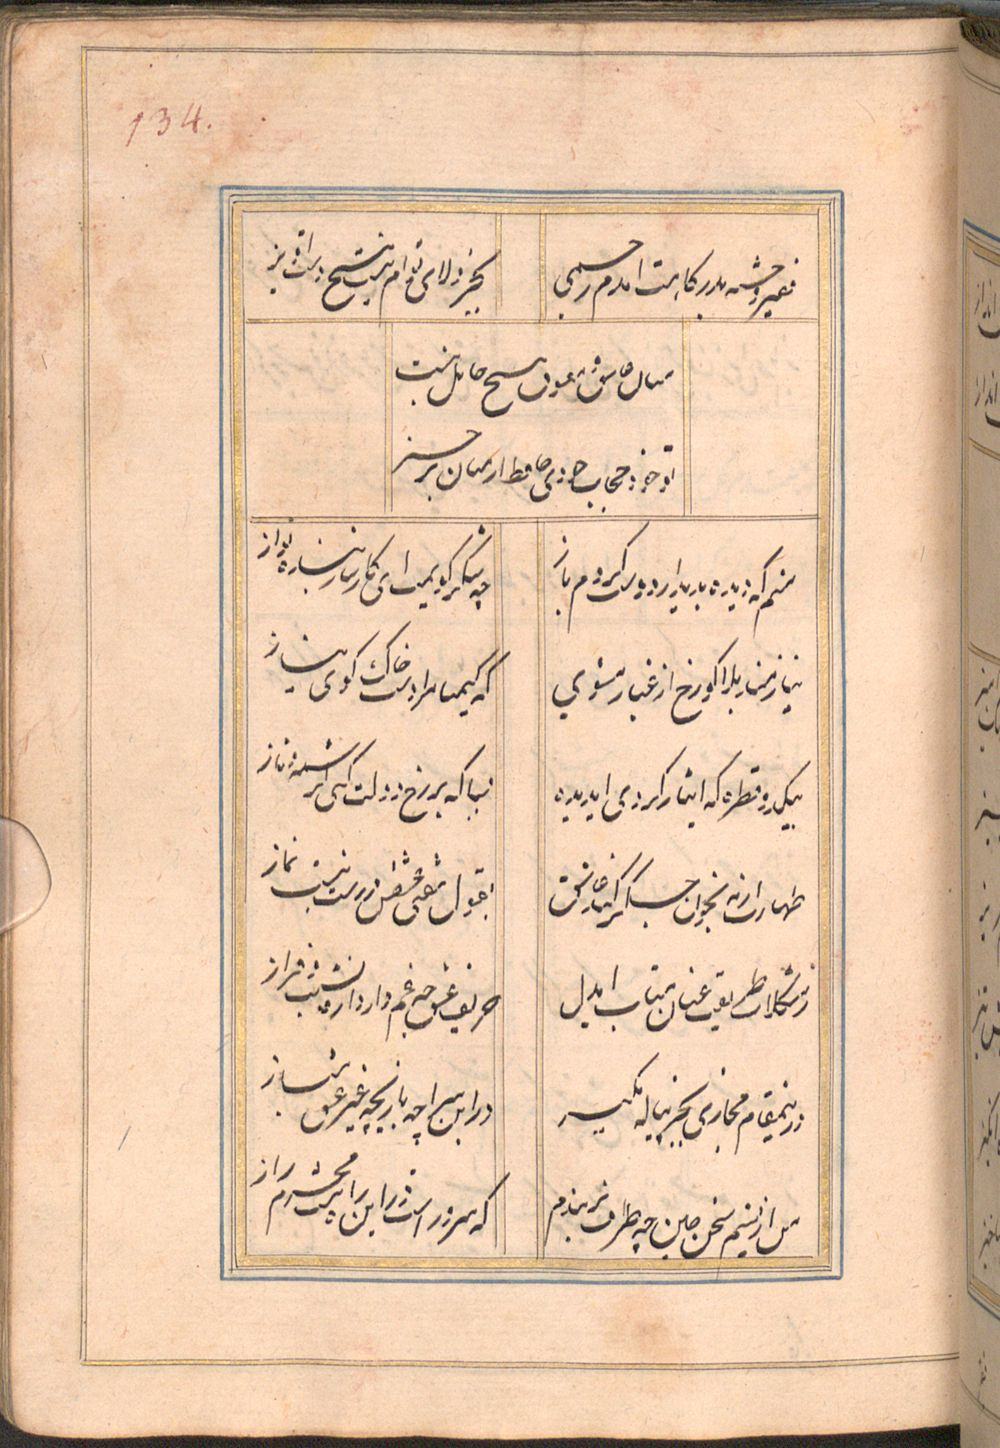 134.
فقیر و خسته بدرگاهت امدم رحمی
بجز ولای توام نیست هیچ دست اویز
میان عاشق و معشوق هیچ حایل نیست
تو خود حجاب خودی حافظ از میان برخیز
منم که دیده بدیدار دوست کردم باز
چه شکر گویمت ای کارساز بنده نواز
نیازمند بلا کو رخ از غبار مشوی
که کیمیا مرادست خاک کوی نیاز
بیک دو قطره که ایثار کردی ای دیده
بسا که بر رخ دولت کنی کرشمه و ناز
طهارت ار نه بخون جکر کند عاشق
بقول مفتی عشقش درست نیست نماز
ز مشکلات طریقت عنان متاب ایدل
حریف عشق چه غم دارد از نشیب و فراز
درینمقام مجازی بجز پیاله مکیر
در این سراچه بازیچه غیر عشق مباز
من از نسیم سخن چین چه طرف بربندم
که سرو راست در این راه نیست محرم راز